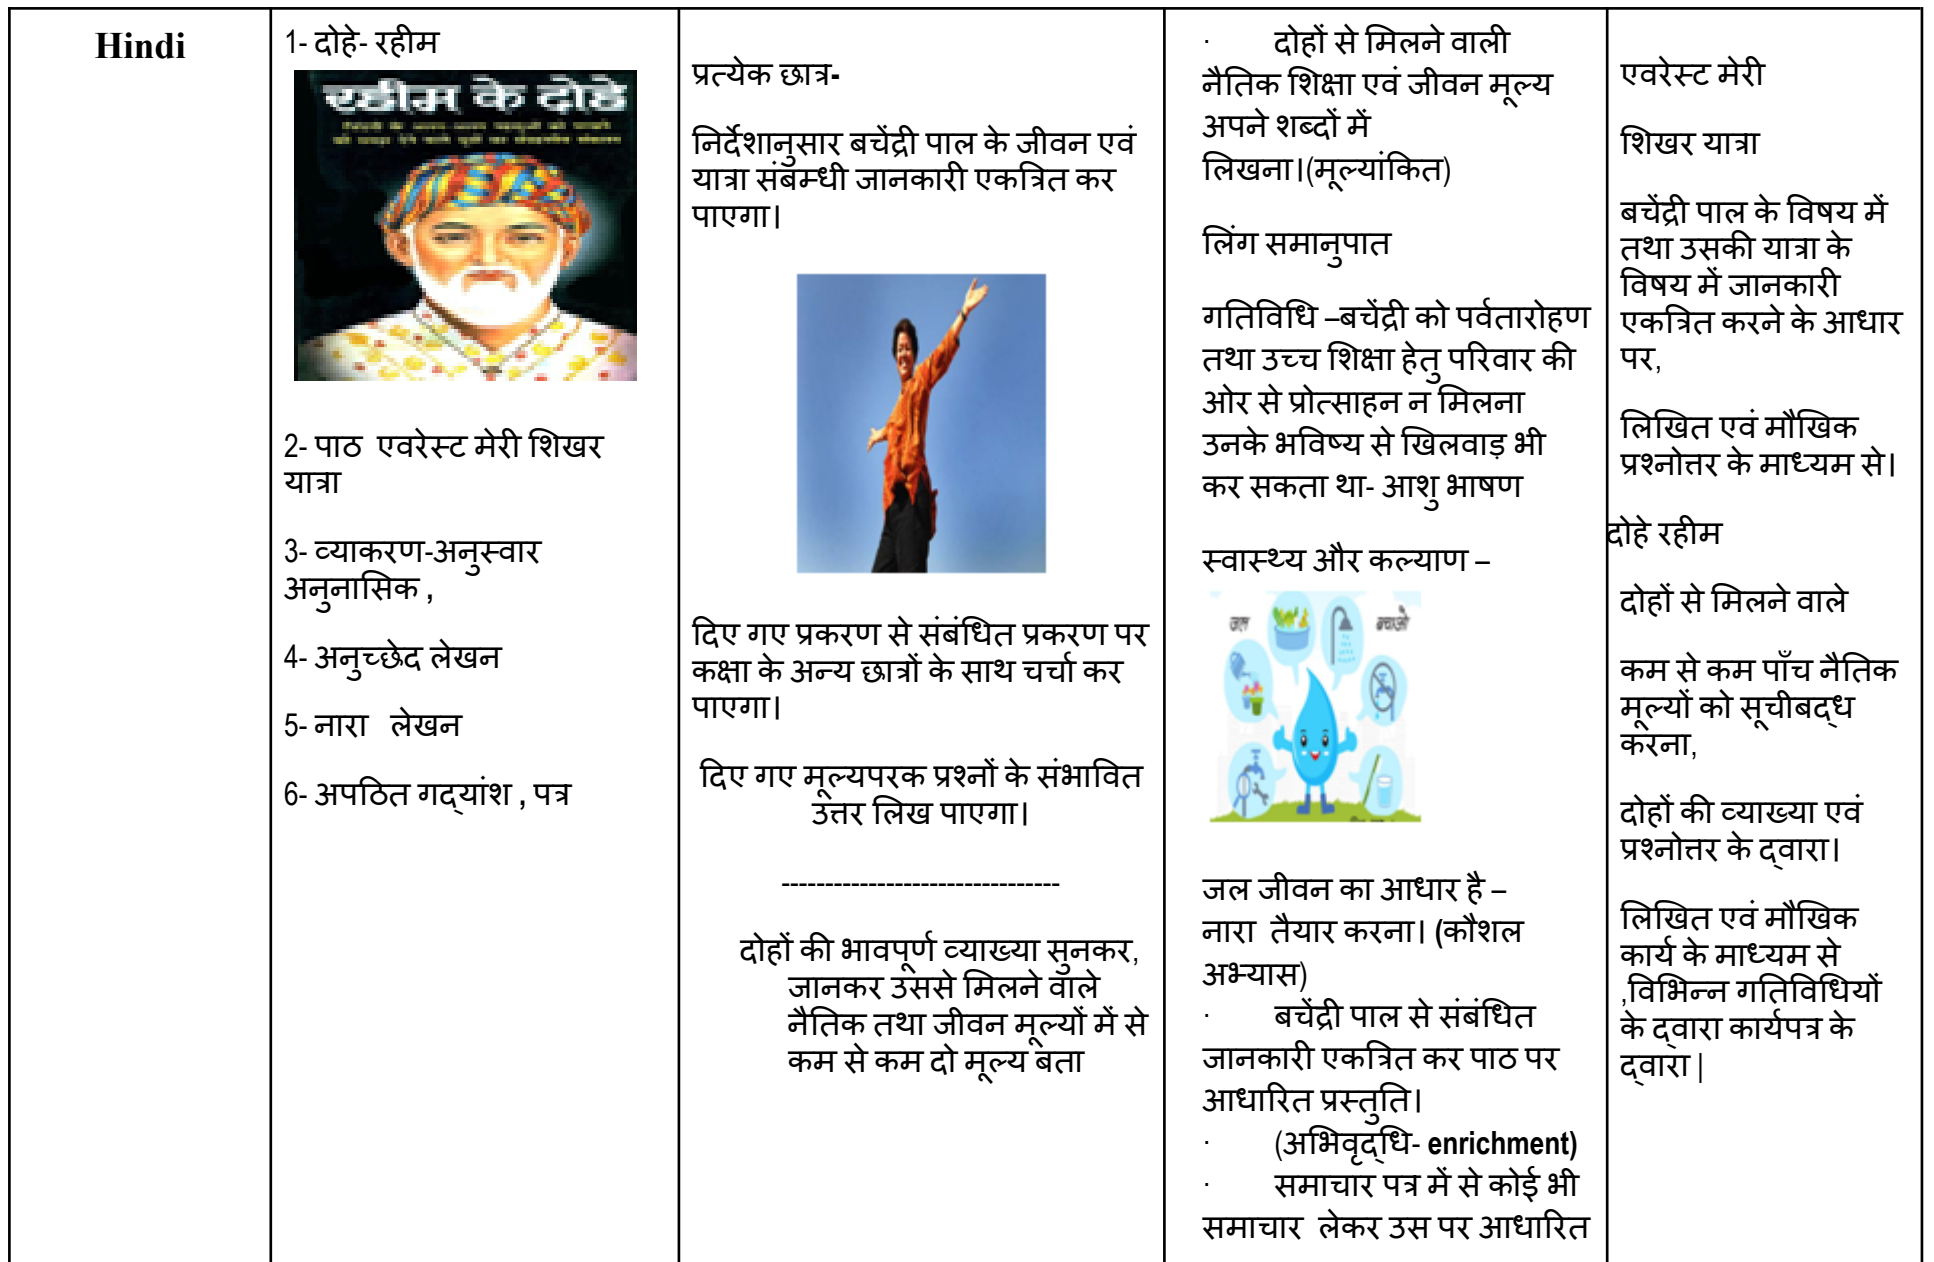 Hindi
1- दोहे- रहीम
रहीम के दोहे
2- पाठ एवरेस्ट मेरी शिखर
यात्रा
3- व्याकरण-अनुस्वार
अनुनासिक ,
4- अनुच्छेद लेखन
5- नारा लेखन
6- अपठित गद्‌यांश , पत्र
प्रत्येक छात्र-
निर्देशानुसार बचेंद्री पाल के जीवन एवं
यात्रा संबम्धी जानकारी एकत्रित कर
पाएगा।
दिए गए प्रकरण से संबंधित प्रकरण पर
कक्षा के अन्य छात्रों के साथ चर्चा कर
पाएगा।
दिए गए मूल्यपरक प्रश्नों के संभावित
उत्तर लिख पाएगा।
--------------------------------
दोहों की भावपूर्ण व्याख्या सुनकर,
जानकर उससे मिलने वाले
नैतिक तथा जीवन मूल्यों में से
कम से कम दो मूल्य बता
· दोहों से मिलने वाली
नैतिक शिक्षा एवं जीवन मूल्य
अपने शब्दों में
लिखना।(मूल्यांकित)
लिंग समानुपात
गतिविधि –बचेंद्री को पर्वतारोहण
तथा उच्च शिक्षा हेतु परिवार की
ओर से प्रोत्साहन न मिलना
उनके भविष्य से खिलवाड़ भी
कर सकता था- आशु भाषण
स्वास्थ्य और कल्याण –
जल बचाओ
जल जीवन का आधार है –
नारा तैयार करना। (कौशल
अभ्यास)
· बचेंद्री पाल से संबंधित
जानकारी एकत्रित कर पाठ पर
आधारित प्रस्तुति।
· (अभिवृद्‌धि- enrichment)
· समाचार पत्र में से कोई भी
समाचार लेकर उस पर आधारित
एवरेस्ट मेरी
शिखर यात्रा
बचेंद्री पाल के विषय में
तथा उसकी यात्रा के
विषय में जानकारी
एकत्रित करने के आधार
पर,
लिखित एवं मौखिक
प्रश्नोत्तर के माध्यम से।
दोहे रहीम
दोहों से मिलने वाले
कम से कम पाँच नैतिक
मूल्यों को सूचीबद्‌ध
करना,
दोहों की व्याख्या एवं
प्रश्नोत्तर के द्‌वारा।
लिखित एवं मौखिक
कार्य के माध्यम से
,विभिन्न गतिविधियों
के द्‌वारा कार्यपत्र के
द्‌वारा |